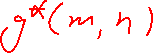 g*(m, n)